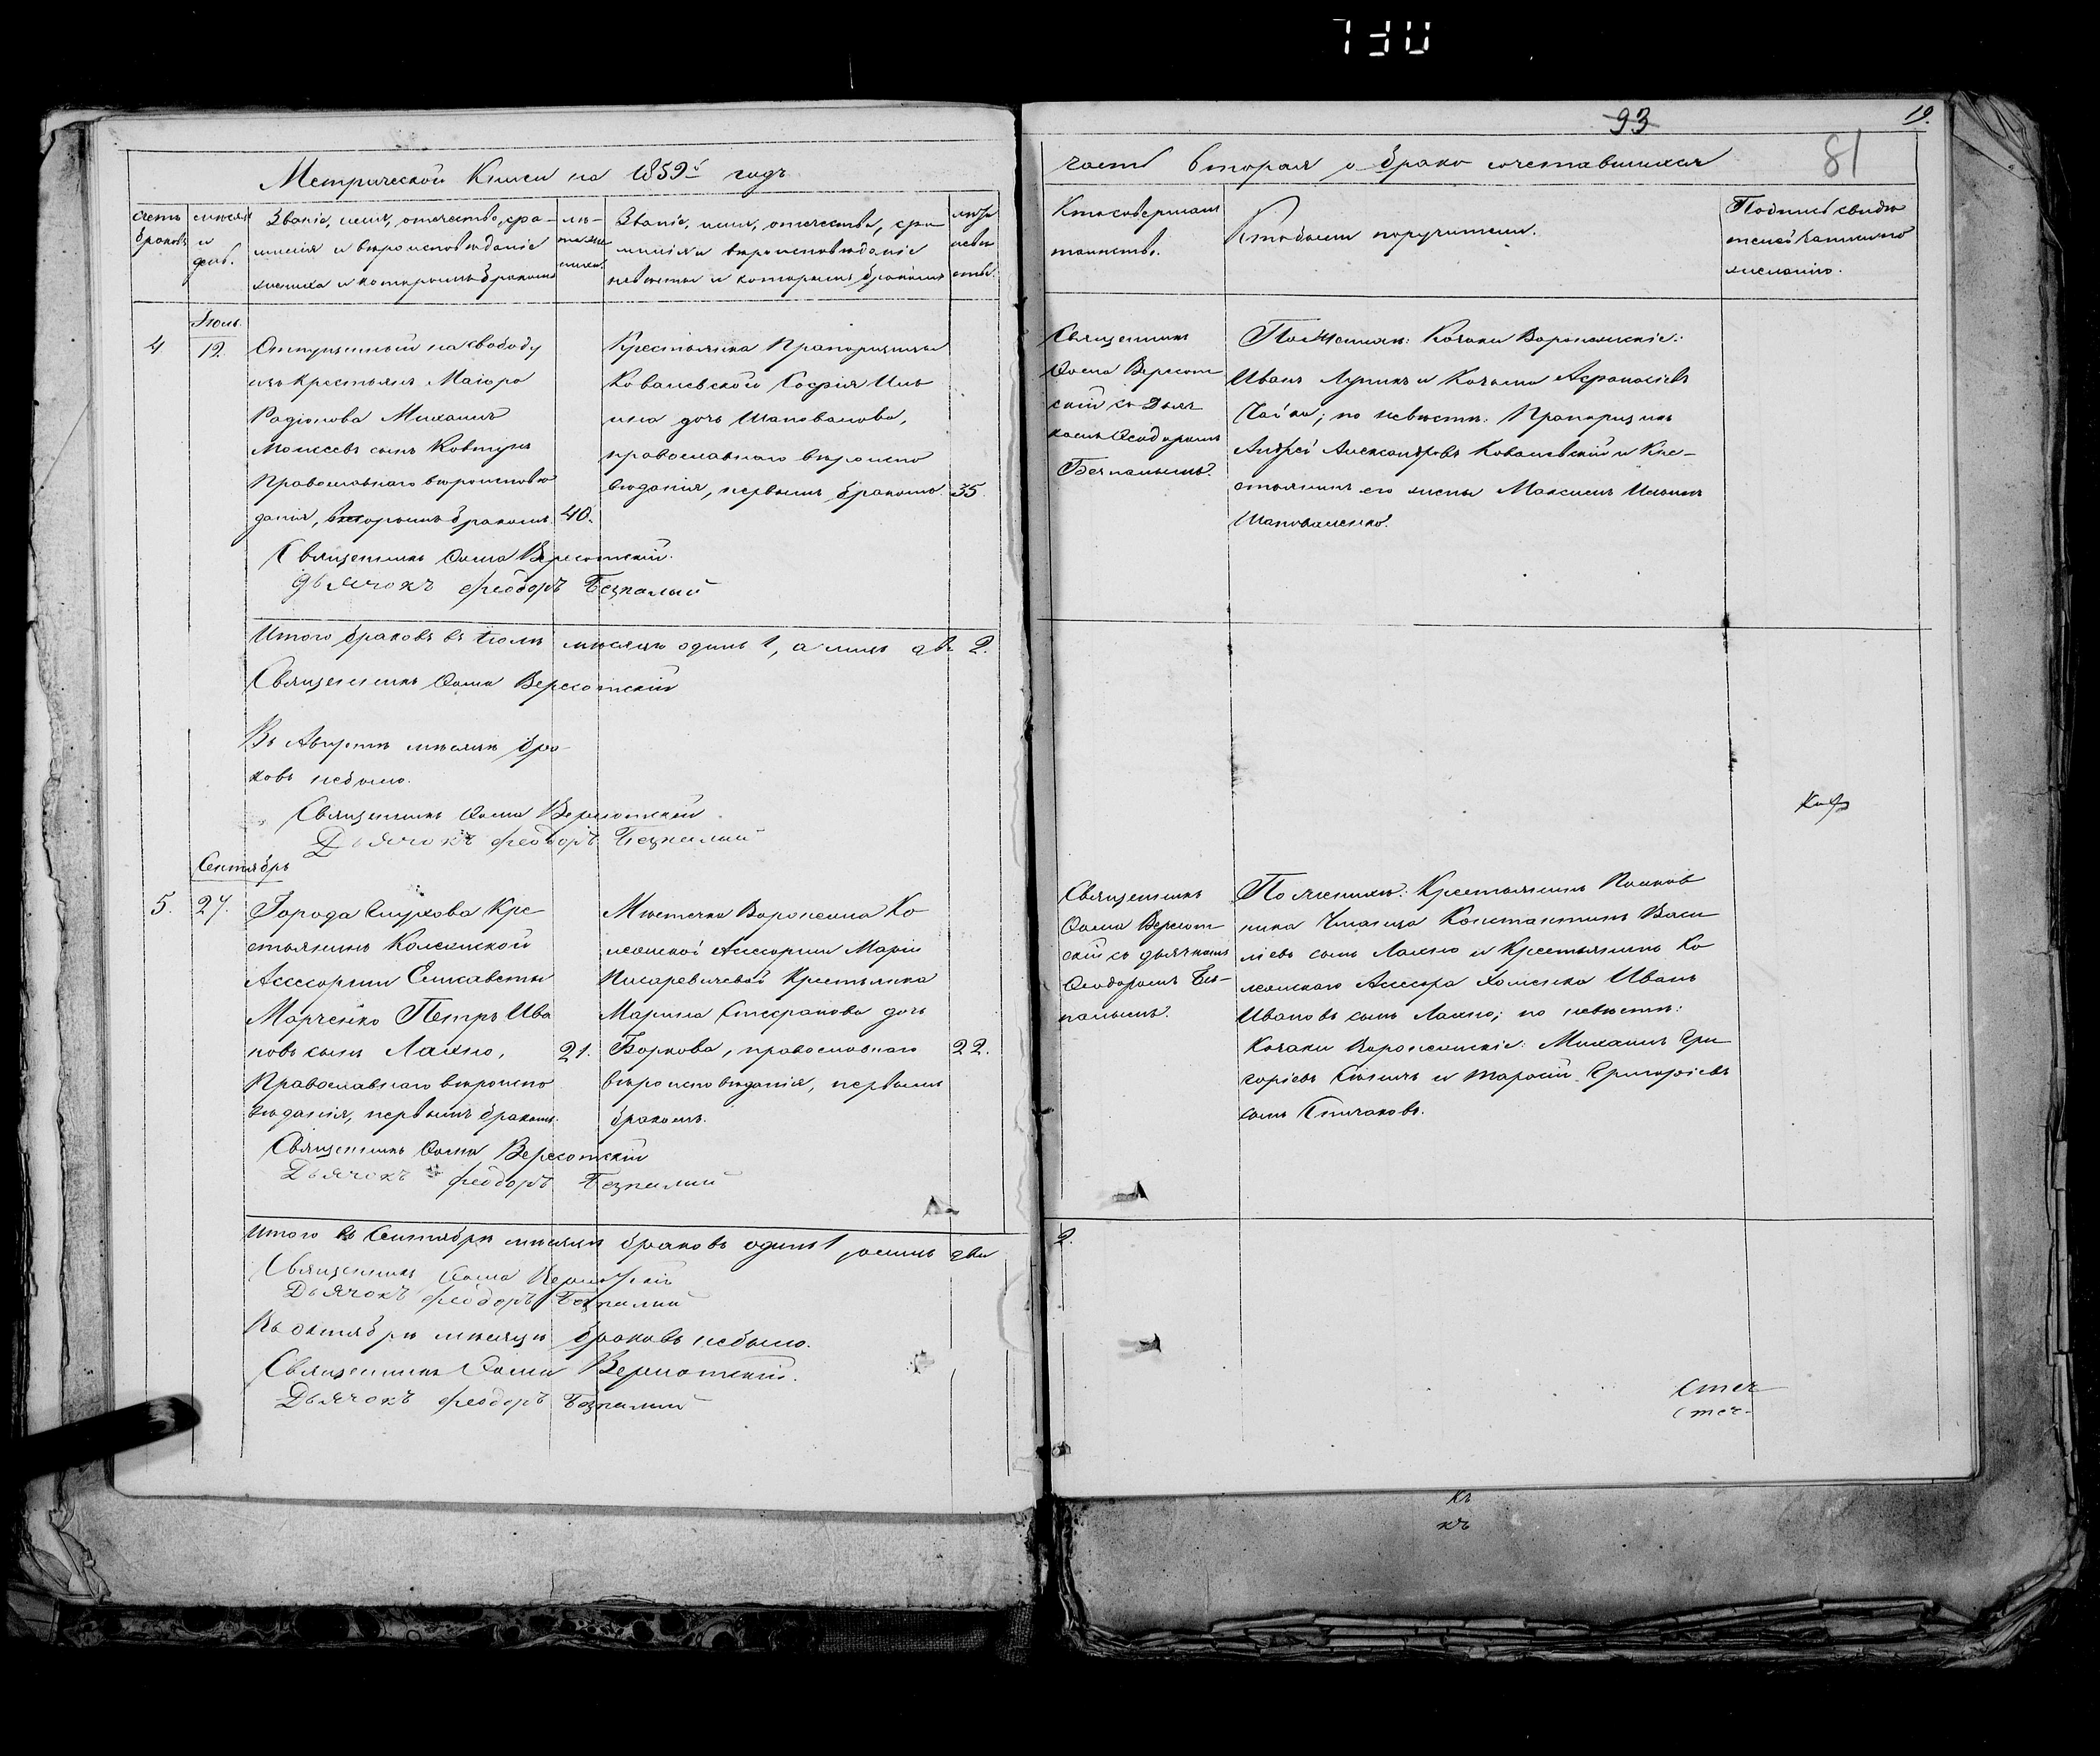 730
93
19.
81
Метрической Книги на 1859й годъ
часть вторая о бракосочетавшихся
Счетъ браковъ
месяцъ и день.
Званіе, имя, отечество, фа-
милія и вѣроисповѣданіе
жениха и которымъ бракомъ
лѣ-
та же
ниха.
Званіе, имя, отечество, фа
милія и вѣроисповѣданіе
невѣсты и которымъ бракомъ
лѣта
невѣ
сты.
Кто совершалъ
таинство.
Кто были поручители.
Подпись свидѣ
телей записи по
желанію.
Іюль.
4
12.
Отпущенный на свободу
изъ крестьянъ Маіора
Радіонова Михаилъ
Моисеевъ сынъ Ковтунъ
Православнаго вѣроисповѣ
данія, вторымъ бракомъ.
40.
Крестьянка Прапорщика
Ковалевскаго Софія Иль
ина дочь Шаповалова,
православнаго вѣроиспо
вѣданія, первымъ бракомъ.
35.
Священникъ
Фома Верессот
скій съ Дьяч
комъ Феодоромъ
Безпалымъ.
По Жениху: Козаки Воронежскіе:
Иванъ Лупикъ и Козьма Афанасіевъ
Чайка; по невѣстѣ: Прапорщикъ
Андрей Александровъ Ковалевскій и Кре-
стьянинъ его Максимъ Ильинъ
Шаповаленко.
Священникъ Фома Вересотскій.
Дьячокъ Феодоръ Безпалый
Итого браковъ въ Іюлѣ мѣсяцѣ одинъ 1, а лицъ два 2.
Священникъ Фома Вересотскій
Въ Августѣ мѣсяцѣ бра-
ковъ небыло.
Священникъ Фома Вересотскій
Дьячокъ Феодоръ Безпалый
Сентябрь
5.
27.
Города Глухова Кре
стьянинъ Колежской
Асессорши Елисаветы
Марченко Петръ Ива
новъ сынъ Лахно,
21.
Православнаго вѣроиспо
вѣданія, первымъ бракомъ.
Мѣстечка Воронежа Ко
лежской Асессорши Маріи
Писаревичевой Крестьянка
Марина Стефанова дочь
Боркова, православнаго
22.
вѣроисповѣданія, первымъ
бракомъ.
Священникъ
Фома Вересот
скій съ дьячкомъ
Феодоромъ Без-
палымъ.
По женихѣ: Крестьянинъ Полков
ника Константинъ Васи
ліевъ сынъ Лахно и Крестьянинъ Ко
лежскаго Асессора Хоменка Иванъ
Ивановъ сынъ Лахно; по невѣстѣ:
Козаки Воронежскіе: Михаилъ Гри
горіевъ и Тарасій Григоріевъ
сынъ Спичаковъ.
Священникъ Фома Вересотскій
Дьячокъ Феодоръ Безпалый
Итого въ Сентябрѣ мѣсяцѣ браковъ одинъ 1, а лицъ два
2.
Священникъ Фома Вересотскій
Дьячокъ Феодоръ Безпалый
Въ октябрѣ мѣсяцѣ браковъ небыло.
Священникъ Фома Вересотскій.
Дьячокъ Феодоръ Безпалый